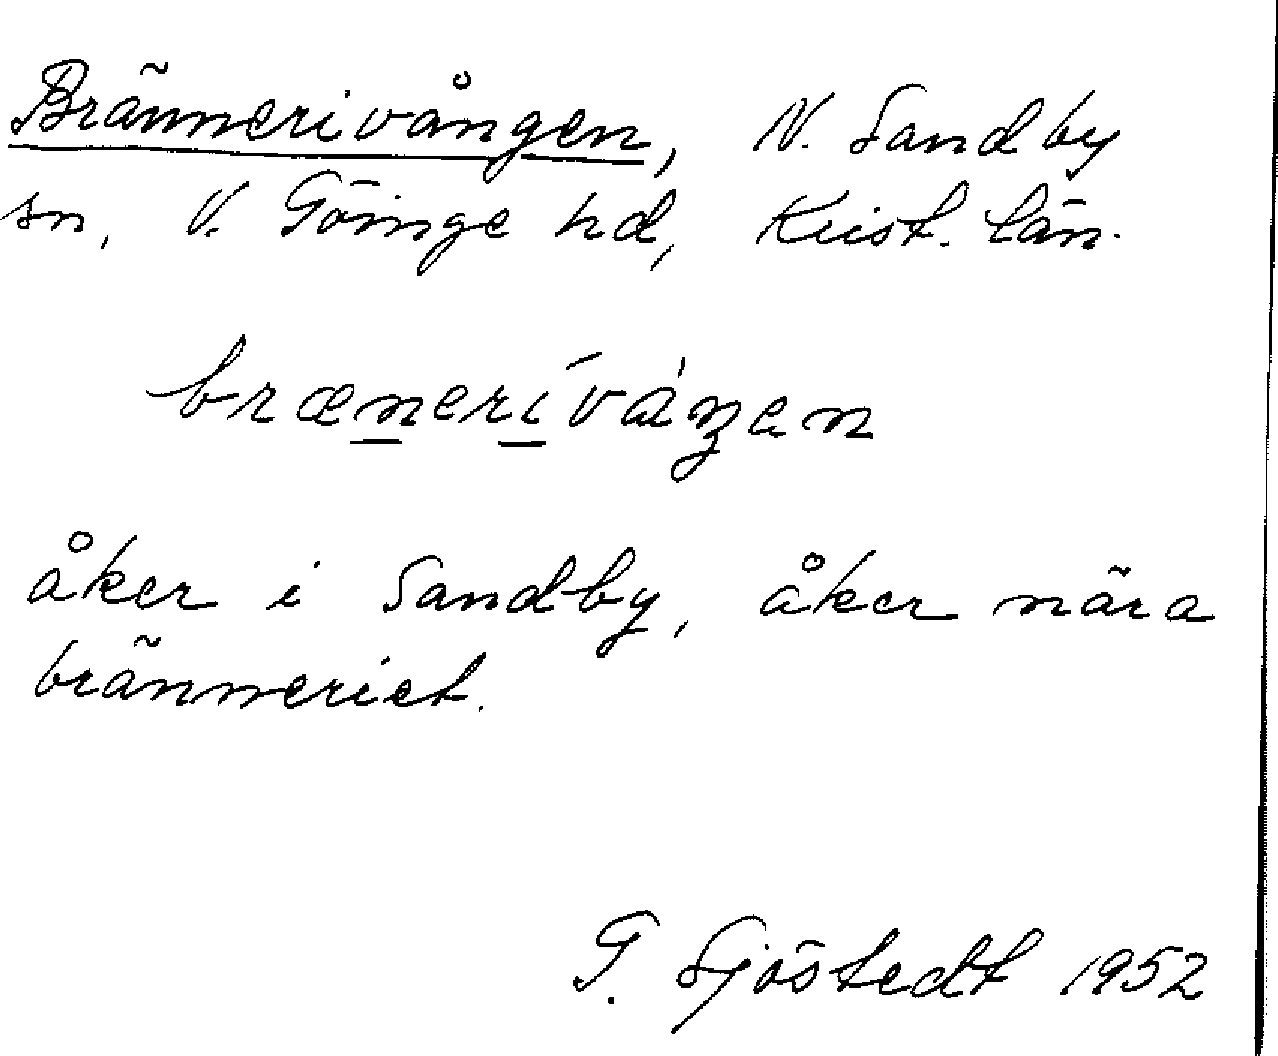 Brännerivången, N. Sandby
sn, V. Göinge hd, Krist. län.
bræneríváŋen
åker i Sandby, åker nära
bränneriet.
G. Sjöstedt 1952